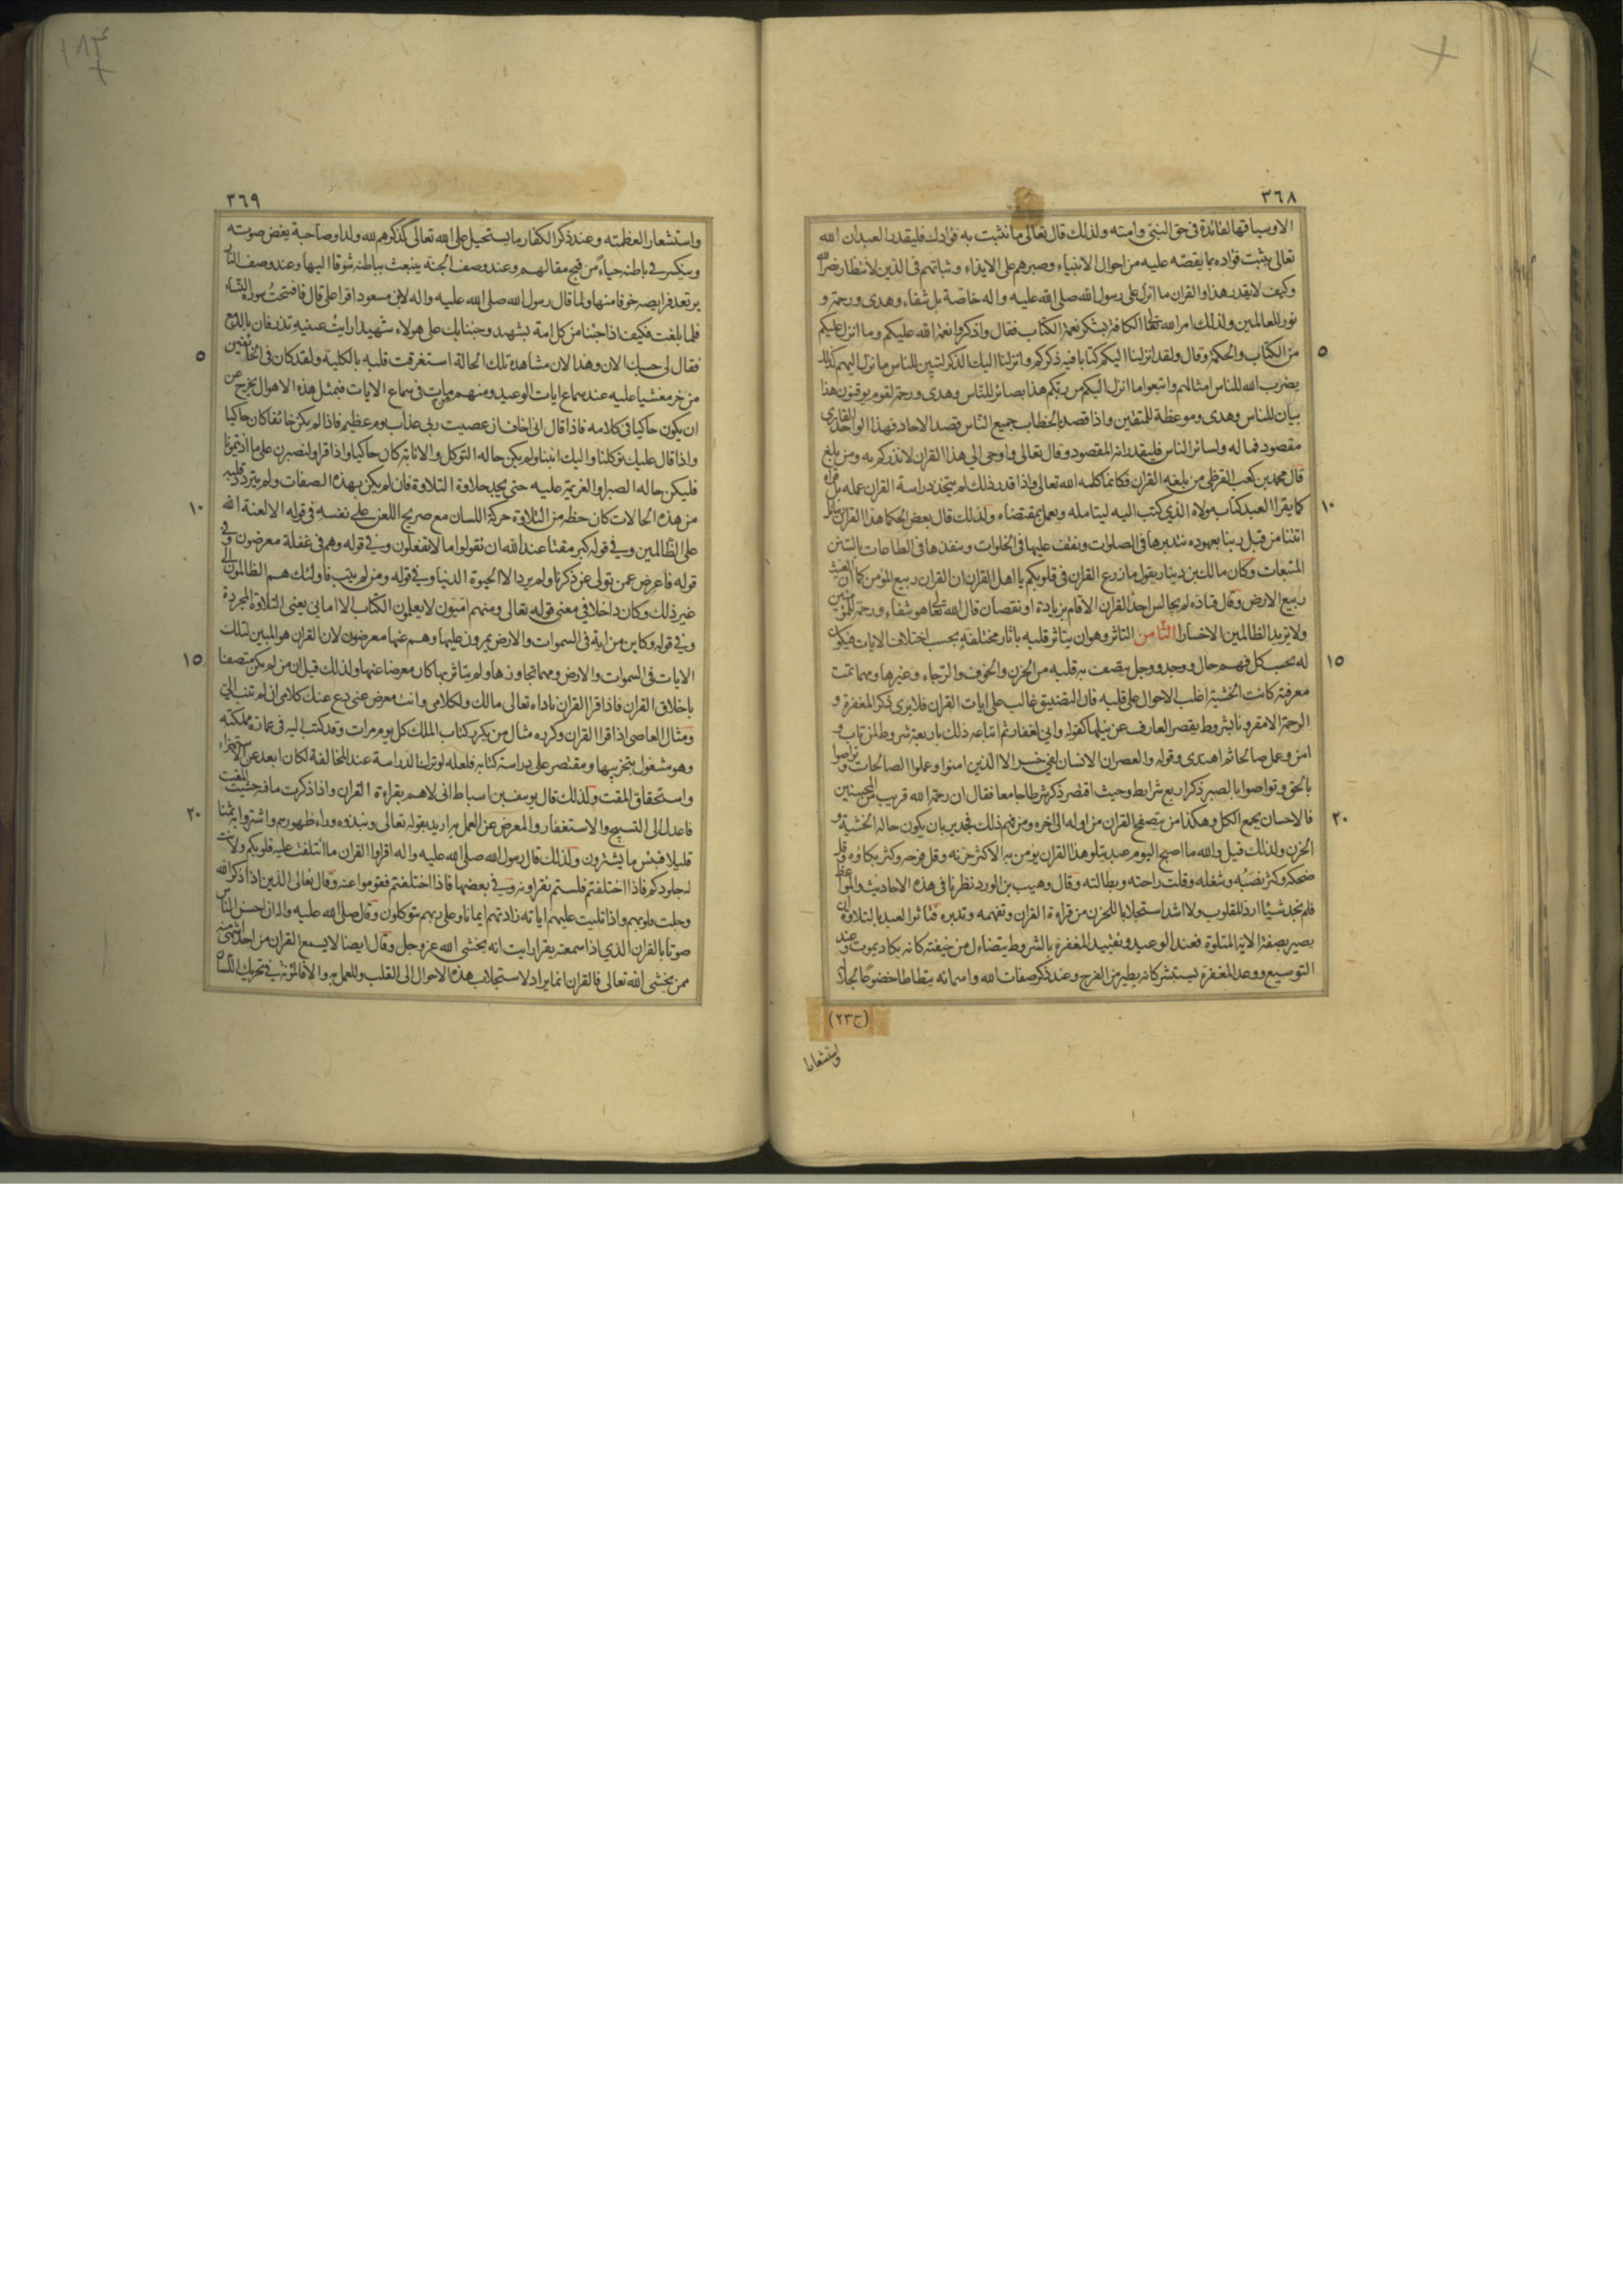 ٣٦٨
الا وسياقها لفائدة فى حق النبى وامته ولذلك قال تعالى ما نثبت به فؤادك فليقدر العبد ان الله
تعالى يثبت فؤاده بما يقصه عليه من احوال الانبياء وصبرهم على الايذاء وثباتهم فى الدين لانتظار نصر الله
وكيف لا يقدر هذا والقران ما انزل على رسول الله صلى الله عليه واله خاصة بل شفاء وهدى ورحمة و
نور للعالمين ولذلك امر الله تعالى الكافة بشكر نعمة الكتاب فقال واذكروا نعمة الله عليكم وما انزل عليكم
٥
من الكتاب والحكمة وقال ولقد انزلنا اليكم كتابا فيه ذكركم وانزلنا اليك الذكر لتبين للناس ما نزل اليهم كذلك
يضرب الله للناس امثالهم واتبعوا ما انزل اليكم من ربكم هذا بصائر للناس وهدى ورحمة لقوم يوقنون هذا
بيان للناس وهدى وموعظة للمتقين واذا قصد بالخطاب جميع الناس قصد الاحاد فهذا الواحد القارى
مقصود فما له ولسائر الناس فليقدر انه المقصود وقال تعالى واوحى الي هذا القران لانذركم به ومن بلغ
قال محمد بن كعب القرظى من بلغه القران فكانما كلمه الله تعالى واذا قدر ذلك لم يتخذ دراسة القران عمله بل قراه
١٠
كما يقرا العبد كتاب مولاه الذي كتب اليه ليتامله ويعمل بمقتضاه ولذلك قال بعض الحكما هذا القران رسائل
اتتنا من قبل ربنا بعهوده نتدبرها فى الصلوات ونقف عليها فى الخلوات وننفذها فى الطاعات بالسنن
المتبعات وكان مالك بن دينار يقول ما زرع القران فى قلوبكم يا اهل القران ان القران ربيع المؤمن كما ان الغيث
ربيع الارض وقال قتاده لم يجالس احد القران الا قام بزيادة او نقصان قال الله تعالى هو شفاء ورحمة للمؤمنين
ولا يزيد الظالمين الا خسارا الثامن التاثر وهو ان يتاثر قلبه باثار مختلفة بحسب اختلاف الايات فيكون
١٥
له بحسب كل فهم حال ووجد ووجل يتصف به قلبه من الحزن والخوف والرجاء وغيرها ومهما تمت
معرفته كانت الخشية اغلب الاحوال على قلبه فان التضييق غالب على ايات القران فلا يرى ذكر المغفرة و
الرحمة الا مقرونا بشروط يقصر العارف عن نيلها كقوله وانى لغفار ثم اتباعه ذلك باربعة شروط لمن تاب و
امن وعمل صالحا ثم اهتدى وقوله والعصر ان الانسان لفى خسر الا الذين امنوا وعملوا الصالحات وتواصوا
بالحق وتواصوا بالصبر ذكر اربع شرايط وحيث اقتصر ذكر شرطا جامعا فقال ان رحمة الله قريب من المحسنين
٢٠
فالاحسان يجمع الكل وهكذا من يتصفح القران من اوله الى اخره ومن فهم ذلك فجدير بان يكون حاله الخشية و
الحزن ولذلك قيل والله ما اصبح اليوم عبد يتلو هذا القران يؤمن به الا كثر حزنه وقل فرحه وكثر بكاؤه وقل
ضحكه وكثر نصبه وشغله وقلت راحته وبطالته وقال وهيب بن الورد نظرنا فى هذه الاحاديث والمواعظ
فلم نجد شيئا ارد للقلوب ولا اشد استجلابا للحزن من قراءة القران وتفهمه وتدبره فتاثر العبد بالتلاوة ان
يصير بصفة الاية المتلوة فعند الوعيد وتقييد المغفرة بالشروط يتضاءل من خيفته كانه يكاد يموت وعند
التوسيع ووعد المغفرة يستبشر كانه يطير من الفرح وعند ذكر صفات الله واسمائه يتطاطا خضوعا لجلاله
(ج٢٣)
واستشعارا
٣٦٩
واستشعار العظمته وعند ذكر الكفار ما يستحيل على الله تعالى كذكرهم لله ولدا وصاحبة يغض صوته
وينكسر فى باطنه حياءً من قبح مقالهم وعند وصف الجنة ينبعث بباطنه شوقا اليها وعند وصف النار
يرتعد فرايصه خوفا منها ولما قال رسول الله صلى الله عليه واله لابن مسعود اقرا على قال فافتحت سورة النساء
فلما بلغت فكيف اذا جئنا من كل امة بشهيد وجئنا بك على هولاء شهيدا رايت عينيه تذرفان بالدمع
٥
فقال لى حسبك الان وهذا لان مشاهدة تلك الحالة استغرقت قلبه بالكلية ولقد كان فى الخائفين
من خر مغشيا عليه عند سماع ايات الوعيد ومنهم من مات فى سماع الايات فبمثل هذه الاهوال يخرج عن
ان يكون حاكيا فى كلامه فاذا قال انى اخاف ان عصيت ربى عذاب يوم عظيم فاذا لم يكن خائفا كان حاكيا
واذا قال عليك توكلنا واليك انبنا ولم يكن حاله التوكل والانابة كان حاكيا واذا قرا ولنصبرن على ما اذيتمونا
فليكن حاله الصبر او العزيمة عليه حتى يجد حلاوة التلاوة فان لم يكن بهذه الصفات ولم يتردد قلبه
١٠
من هذه الحالات كان حظه من التلاوة حركة اللسان مع صريح اللعن على نفسه فى قوله الا لعنة الله
على الظالمين وفى قوله كبر مقتا عند الله ان تقولوا ما لا تفعلون وفى قوله وهم فى غفلة معرضون وفى
قوله فاعرض عمن تولى عن ذكرنا ولم يرد الا الحيوة الدنيا وفى قوله ومن لم يتب فاولئك هم الظالمون الى
غير ذلك وكان داخلا فى معنى قوله تعالى ومنهم اميون لا يعلمون الكتاب الا امانى يعنى التلاوة المجردة
وفى قوله وكاين من اية فى السموات والارض يمرون عليها وهم عنها معرضون لان القران هو المبين لتلك
١٥
الايات فى السموات والارض ومهما تجاوزها ولم يتاثر بها كان معرضا عنها ولذلك قيل ان من لم يكن متصفا
باخلاق القران فاذا قرا القران ناداه تعالى مالك ولكلامى وانت معرض عنى دع عنك كلامى ان لم تتب الي
ومثال العاصى اذا قرا القران وكرره مثال من يكرر كتاب الملك كل يوم مرات وقد كتب اليه فى عمارة مملكته
وهو مشغول بتخريبها ومقتصر على دراسة كتابه فلعله لو ترك الدراسة عند المخالفة لكان ابعد عن الاستهزاء
واستحقاق المقت ولذلك قال يوسف بن اسباط انى لاهم بقراءة القران واذا ذكرت ما فيه خشيت المقت
٢٠
فاعدل الى التسبيح والاستغفار والمعرض عن العمل به اريد بقوله تعالى ونبذوه وراء ظهورهم واشتروا به ثمنا
قليلا فبئس ما يشترون ولذلك قال رسول الله صلى الله عليه واله اقراوا القران ما ائتلفت عليه قلوبكم ولانت
له جلودكم فاذا اختلفتم فلستم تقراونه وفى بعضها فاذا اختلفتم فقوموا عنه وقال تعالى الذين اذا ذكر الله
وجلت قلوبهم واذا تليت عليهم اياته زادتهم ايمانا وعلى ربهم يتوكلون وقال صلى الله عليه واله ان احسن الناس
صوتا بالقران الذي اذا سمعته يقرا رايت انه يخشى الله عز وجل وقال ايضا لا يسمع القران من احد اشهى منه
ممن يخشى الله تعالى فالقران انما يراد لاستجلاب هذه الاحوال الى القلب وللعمل به والا فالمؤنة فى تحريك اللسان